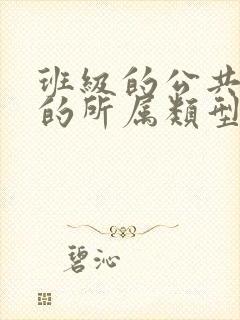 班級的公共
的所属類型
碧沁